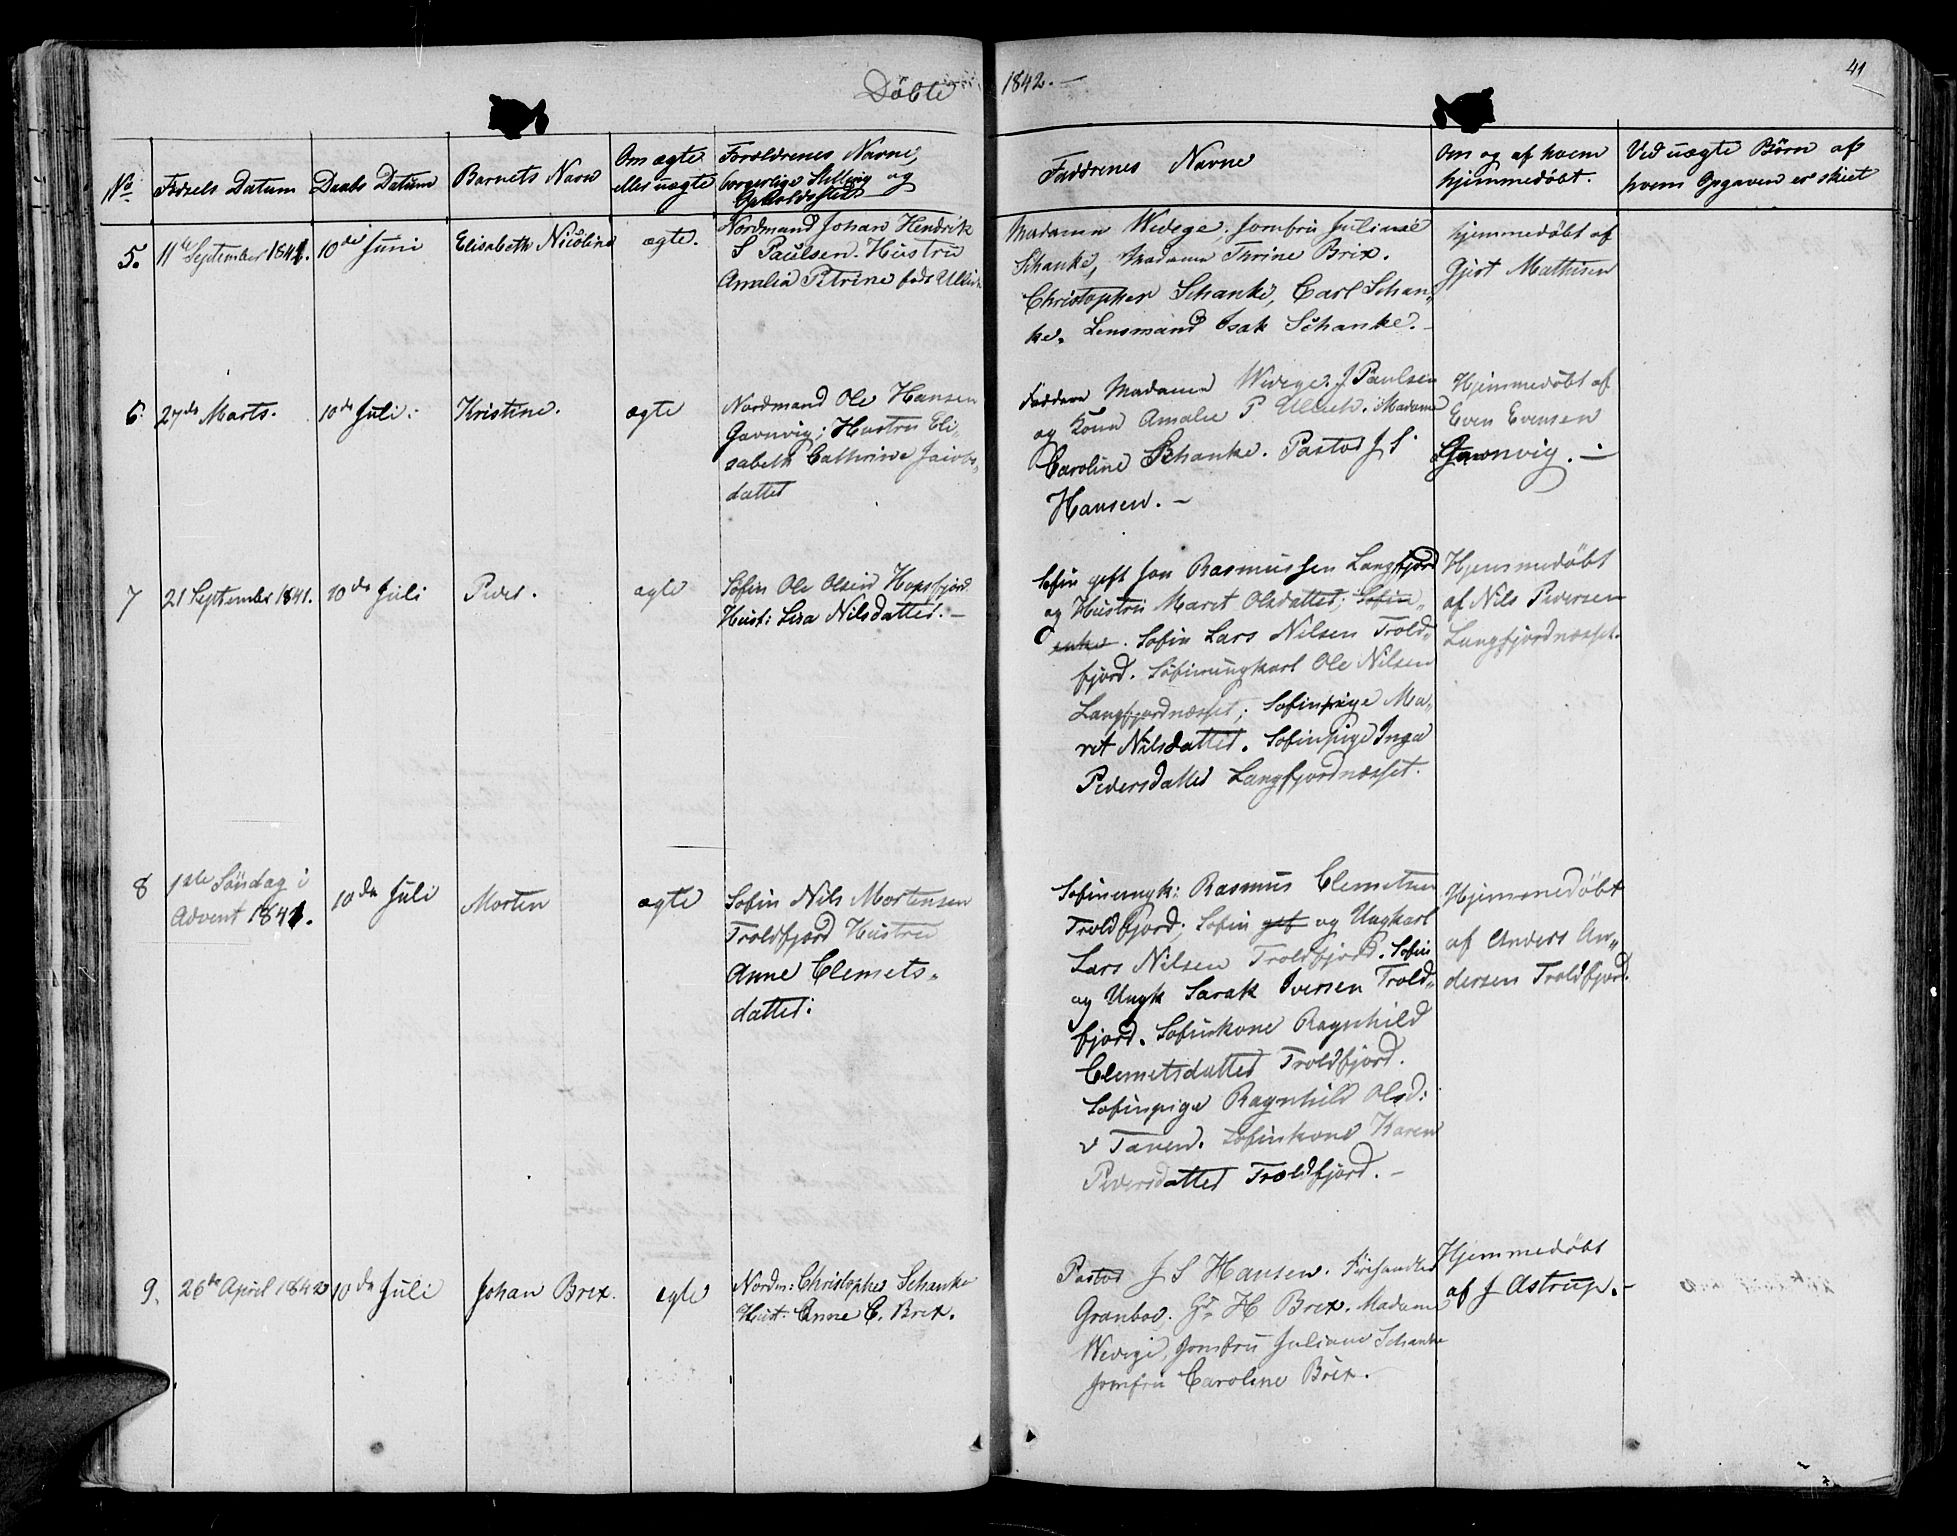 Döbte 1842.
41
No
Fødsels Datum
Daabs Datum
Barnets Navn
Om ægte
eller uægte
Forældrenes Navne,
borgerlige Stilling og
Opholdssted
Faddrenes Navne
Om og af hvem
hjemmedøbt.
Ved uægte Børn af
hvem Opgaven er skeet
5.
11te September 1841.
10de Juni
Elisabeth Nicoline
ægte.
Nordmand Johan Hendrik
S Paulsen. Hustru
Amalia Petrine føds Ullich
Madame Wedege. Jomfru Juliane
Schanke, Madame Thrine Brix.
Christopher Schanke, Carl Schan-
ke. Lensmand Isak Schanke.-
hjemmedøbt af
Gjert Mathisen
6.
27de Marts.
10de Juli.
Kristine.
ægte
Nordmand Ole Hansen
Gavnvig; Hustru Eli-
sabeth Cathrine Jacobs-
datter
Faddere Madame Wedege. J Paulsen
og Kone Amalie P Ullich. Madame
Caroline Schanke. Pastor J S
Hansen. -
Hjemmedøbt af
Even Evensen
Gavnvig. -
7
21 September 1841.
10de Juli
Peder.
ægte
Søfin Ole Olsen Hopsfjord
Hust: Lisa Nilsdatter. -
Søfin gift Jon Rasmussen Langfjord
og Hustru Maret Olsdatter; Søfin-
enke. Søfin Lars Nilsen Trold-
fjord. Søfinungkarl Ole Nilsen
Langfjordnæsset; Søfinpige Ma-
ret Nilsdatter. Søfinpige Inga
Pedersdatter Langfjordnæsset.
Hjemmedøbt
af Nils Pedersen
Langfjordnæsset.
8
1ste Söndag i
Advent 1841.
10de Juli
Morten
ægte
Søfin Nils Mortensen
Troldfjord Hustru
Anne Clemets-
datter.
Søfinungk: Rasmus Clemetsen
Troldfjord; Søfin gif og Ungkarl
Lars Nilsen Troldfjord. Søfin
og Ungk Sarak Iversen Trold-
fjord. Søfinkone Ragnhild
Clemetsdatter Troldfjord.
Søfinpige Ragnhild Olsd:
v Tanen. Søfinkone Karen
Pedersdatter Troldfjord. -
Hjemmedøbt
af Anders An-
dersen Troldfjord.
9.
26de April 1842
10de Juli
Johan Brix.
ægte
Nordm: Christopher Schanke
Hust: Anne C. Brix.
Pastor J S Hansen. Friehandler
Granboe. Gr H Brix. Madame
Wedege, Jomfru Juliane Schanke
Jomfru Caroline Brix.
Hjemmedøbt
af J Astrup. -